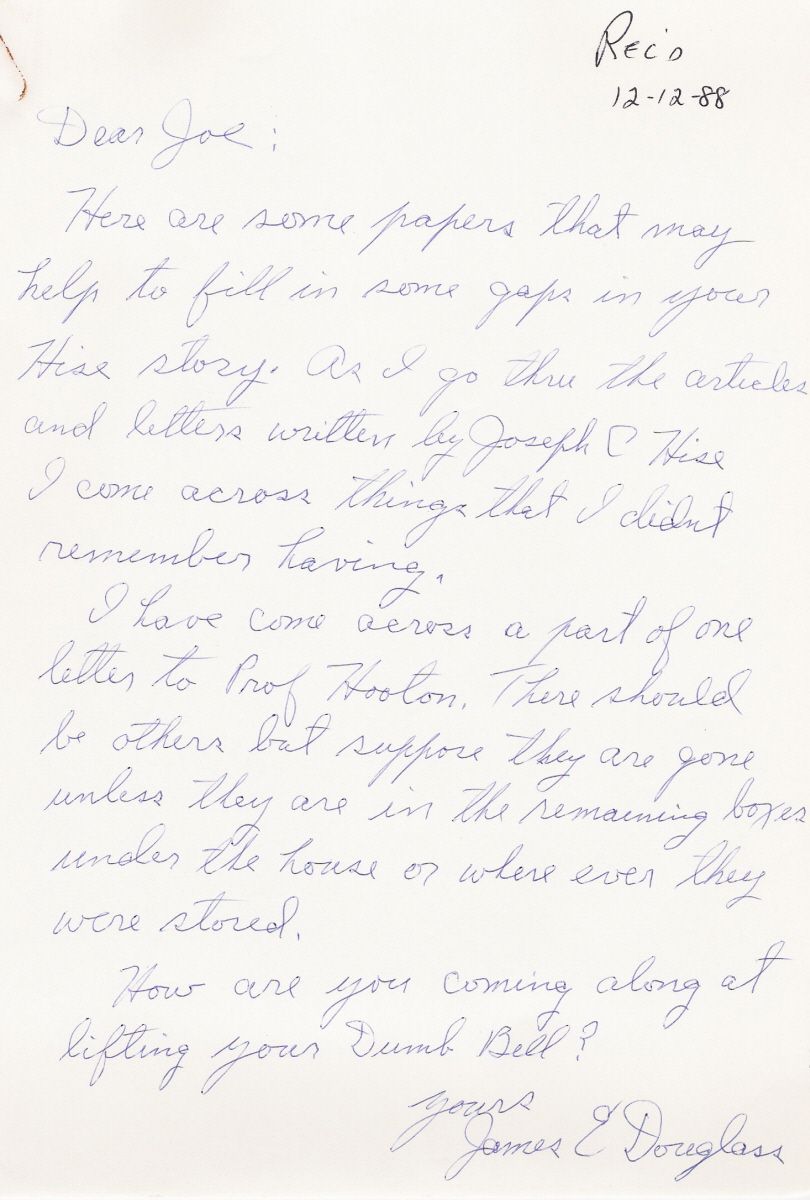 Rec'd
12-12-88
Dear Joe:
Here are some papers that may
help to fill in some gaps in your
Hise story. As I go thru the articles
and letters written by Joseph C Hise
I come across things that I didnt
remember having.
I have come across a part of one
letter to Prof Hooton. There should
be others but suppose they are gone
unless they are in the remaining boxes
under the house or where ever they
were stored.
How are you coming along at
lifting your Dumb Bell?
yours
James E Douglass